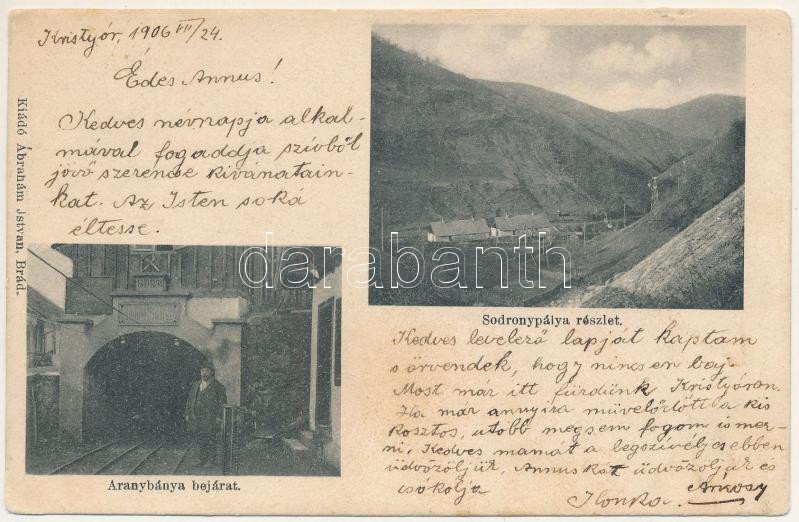 Kristyór, 1906 VII/24.
Édes Annus!
Kedves névnapja alkal-
mával fogaddja szivből
jövő szerencse kivánatain-
kat. Az Isten soká
éltesse.
Kiadó Ábrahám Istvan, Brád.
darabanth
Sodronypálya részlet.
Aranybánya bejárat.
Kedves levelező lapját kaptam
s örvendek, hogy nincsen baj.
Most már itt fürdünk Kristyóron.
Ha már annyira müvelődött a kis
kosztos, utóbb megsem fogom ismer-
ni. Kedves mamát a legszivélyesebben
üdvözöljük, Annuskat üdvözöljük és
csókolja
Ilonka.